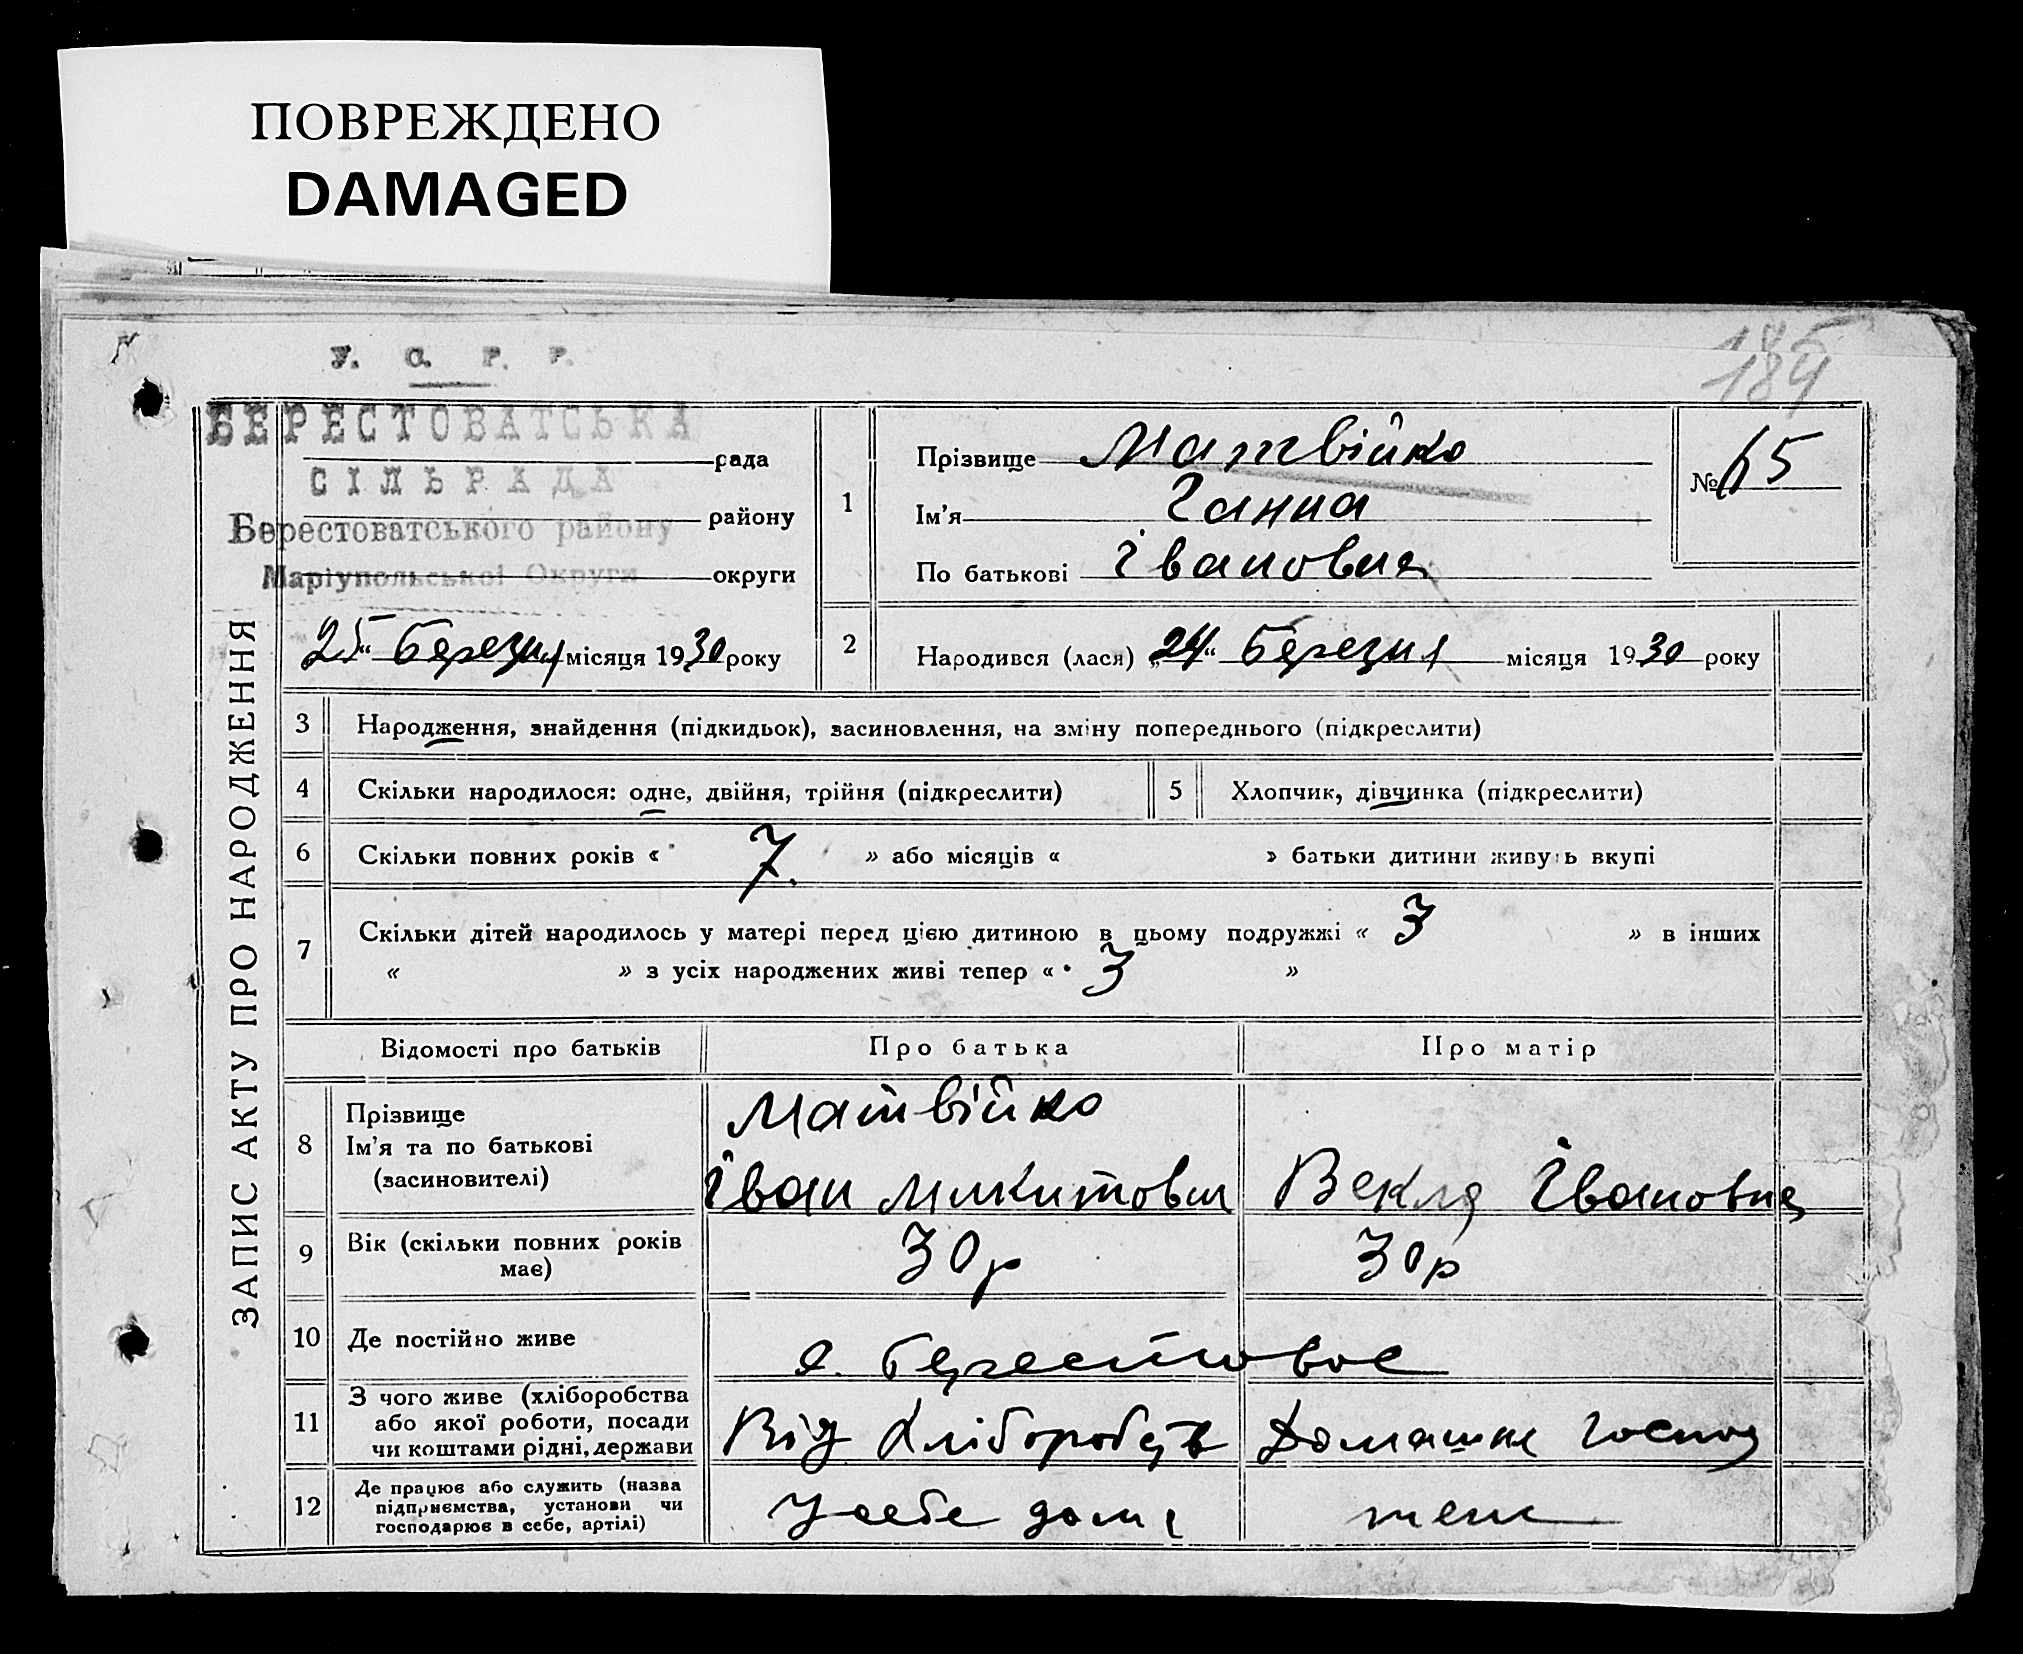 ПОВРЕЖДЕНО
DAMAGED
У. С. Р. Р.
184
БЕРЕСТОВАТСЬКА
рада
СІЛЬРАДА
району
Берестоватського району
Маріупольської Округи
округи
25" Березня місяця 1930 року
1
Прізвище Матвійко
Ім'я Ганна
По батькові Івановна
№ 65
2
Народився (лася) „24" Березня місяця 1930 року
ЗАПИС АКТУ ПРО НАРОДЖЕННЯ
3 Народження, знайдення (підкидьок), засиновлення, на зміну попереднього (підкреслити)
4 Скільки народилося: одне, двійня, трійня (підкреслити)
5 Хлопчик, дівчинка (підкреслити)
6 Скільки повних років « 7. » або місяців « » батьки дитини живуть вкупі
7 Скільки дітей народилось у матері перед цією дитиною в цьому подружжі « 3 » в інших
« » з усіх народжених живі тепер « 3 »
Відомості про батьків Про батька Про матір
8 Прізвище
Ім'я та по батькові
(засиновителі)
Матвійко
Іван Микитович
Векла Івановна
9 Вік (скільки повних років
має)
30р
30р
10 Де постійно живе
с. Берестовое
11 З чого живе (хліборобства
або якої роботи, посади
чи коштами рідні, держави
Від Хліборобств
Домашнє Господ
12 Де працює або служить (назва
підприємства, установи чи
господарює в себе, артілі)
У себе дома